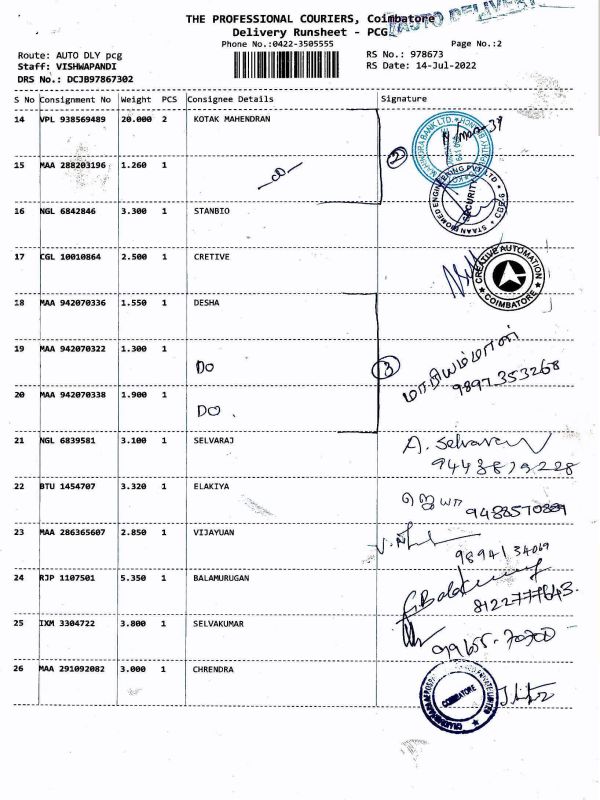 THE PROFESSIONAL COURIERS, Coimbatore
AUTO DELIVERY
Delivery Runsheet - PCG
Phone No.:0422-3505555 Page No.:2
Route: AUTO DLY pcg RS No.: 978673
Staff: VISHWAPANDI RS Date: 14-Jul-2022
DRS No.: DCJB97867302
S No Consignment No Weight PCS Consignee Details Signature
14 VPL 938569489 20.000 2 KOTAK MAHENDRAN
2
15 MAA 288203196 1.260 1
STAAN BIOMED ENGINEERING PVT LTD SECURITY CBE-6
16 NGL 6842846 3.300 1 STANBIO
17 CGL 10010864 2.500 1 CRETIVE
CREATIVE AUTOMATION COIMBATORE
18 MAA 942070336 1.550 1 DESHA
மாரியம்மாள்
19 MAA 942070322 1.300 1 DO 3
9897353268
20 MAA 942070338 1.900 1 DO.
21 NGL 6839581 3.100 1 SELVARAJ A. Selvaraj
22 BTU 1454707 3.320 1 ELAKIYA ஜெயா
23 MAA 286365607 2.850 1 VIJAYUAN
9894134069
24 RJP 1107501 5.350 1 BALAMURUGAN
25 IXM 3304722 3.800 1 SELVAKUMAR
99655-70700
26 MAA 291092082 3.000 1 CHRENDRA
COIMBATORE